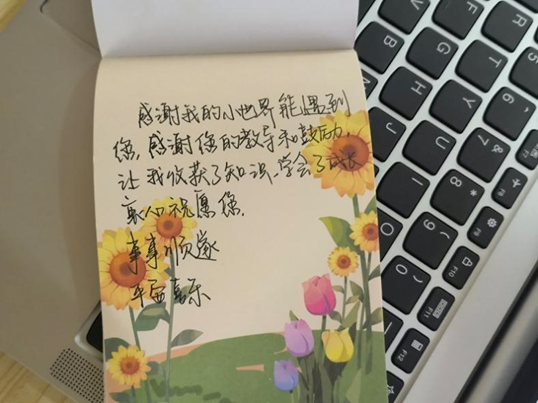 感谢我的小世界能遇到
您,感谢您的教导和鼓励,
让我收获了知识、学会了成长
衷心祝愿您.
事事顺遂
平安喜乐